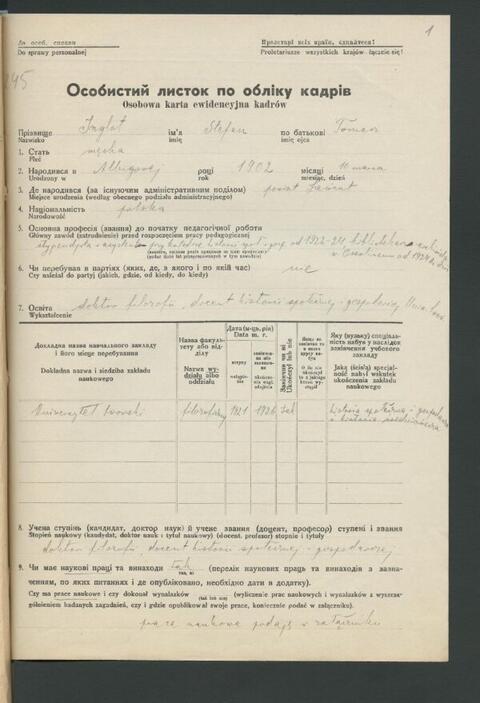 1
До особ. справи
Do sprawy personalnej
Пролетарі всіх країн, єднайтеся!
Proletariusze wszystkich krajów łączcie się!
Особистий листок по обліку кадрів
Osobowa karta ewidencyjna kadrów
Прізвище Inglot ім'я Stefan по батькові Tomasz
Nazwisko imię imię ojca
1. Стать męska
Płeć
2. Народився в Albigowej році 1902 місяці 10 marca
Urodzony w rok miesiąc, dzień
3. Де народився (за існуючим адміністративним поділом) powiat Łańcut
Miejsce urodzenia (według obecnego podziału administracyjnego)
4. Національність polska
Narodowość
5. Основна професія (звання) до початку педагогічної роботи
Główny zawód (zatrudnienie) przed rozpoczęciem pracy pedagogicznej
6. Чи перебував в партіях (яких, де, з якого і по який час) nie
Czy należał do partyj (jakich, gdzie, od kiedy, do kiedy)
7. Освіта doktor filozofii, docent historii społecznej i gospodarczej
Wykształcenie
Докладна назва навчального закладу і його місце перебування
Dokładna nazwa i siedziba zakładu naukowego
Назва факультету або відділу
Nazwa wydziału albo oddziału
Дата (м-ць, рік)
Data m. r.
Яку (вузьку) спеціальність набув у наслідок закінчення учбового закладу
Jaką (ścisłą) specjalność nabył wskutek ukończenia zakładu naukowego
Uniwersytet lwowski filozoficzny 1921 1926 tak historia społeczna i gospodarcza
8. Учена ступінь (кандидат, доктор наук) й учене звання (доцент, професор) ступені і звання
Stopień naukowy (kandydat, doktor nauk i tytuł naukowy) (docent, profesor) stopnie i tytuły
doktor filozofii, docent historii społecznej i gospodarczej
9. Чи має наукові праці та винаходи tak (перелік наукових праць та винаходів з зазначенням, по яких питаннях і де опубліковано, необхідно дати в додатку).
Czy ma prace naukowe i czy dokonał wynalazków (tak lub nie) (wyliczenie prac naukowych i wynalazków z wyszczególnieniem badanych zagadnień, czy i gdzie opublikował swoje prace, koniecznie podać w załączniku).
prace naukowe podaję w załączniku